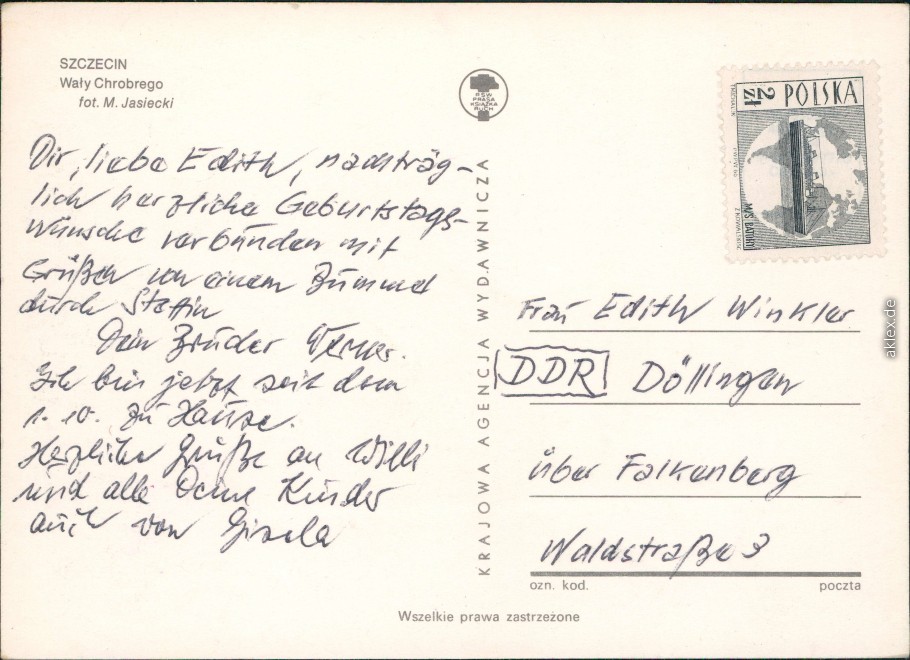 SZCZECIN
Wały Chrobrego
fot. M. Jasiecki
Dir, liebe Edith, nachträg-
lich herzliche Geburtstags-
wünsche verbunden mit
Grüßen von einem Bummel
durch Stettin
Dein Bruder Werner.
Ich bin jetzt seit dem
1. 10. zu Hause.
Herzliche Grüße an Willi
und alle Deine Kinder
auch von Gisela
RSW
PRASA
KSIĄŻKA
RUCH
KRAJOWA AGENCJA WYDAWNICZA
2 zł POLSKA
M/S BATORY
Frau Edith Winkler
DDR Döllingen
über Falkenberg
Waldstraße 3
ozn. kod. poczta
Wszelkie prawa zastrzeżone
aklex.de